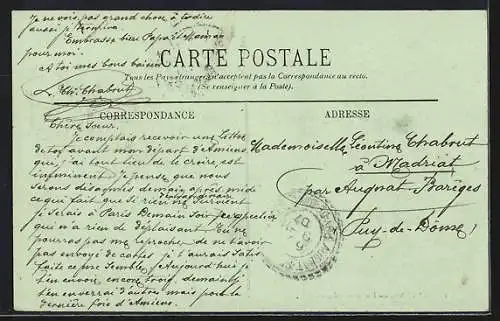 je ne vois pas grand chose à te dire
aussi je termine
Embrasse bien Papa et Maman
pour moi.
A toi mes bons baisers
Chabout
CARTE POSTALE
Tous les Pays étrangers n'acceptent pas la Correspondance au recto.
(Se renseigner à la Poste).
CORRESPONDANCE
ADRESSE
Chère Sœur,
Je comptais recevoir une lettre
de toi avant mon départ d'Amiens
qui, j'ai tout lieu de le croire, est
imminent. Je pense que nous
serons désarmés demain après midi
ce qui fait que si rien ne survient
je serais à Paris Demain Soir, perspective
qui n'a rien de déplaisant. Tu ne
pourras pas me reproche de ne t'avoir
pas envoyé de cartes, je t'aurais Satis
faite ce me semble. Aujourd'hui je
t'en envoie encore trois, demain je
t'en enverrai d'autres mais pour la
dernière fois d'Amiens.
Mademoiselle Léontine Chabout
à Madriat
par Augnat-Barèges
Puy-de-Dôme